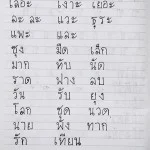 เลอะ เงาะ เยอะ
ละ ละ แวะ ธุระ
แพะ และ
ชุง มืด เล็ก
มาก ทับ นัด
ราด ฟาง ลบ
วัน รับ ยุง
โลก ชุด นวด
นาย พัง ทาก
รัก เทียน